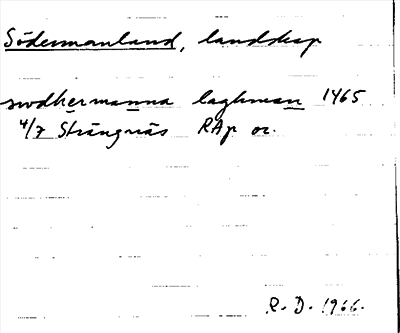 Södermanland, landskap
swdhermanna laghman 1465
4/7 Strängnäs RAp or.
R. D. 1966.